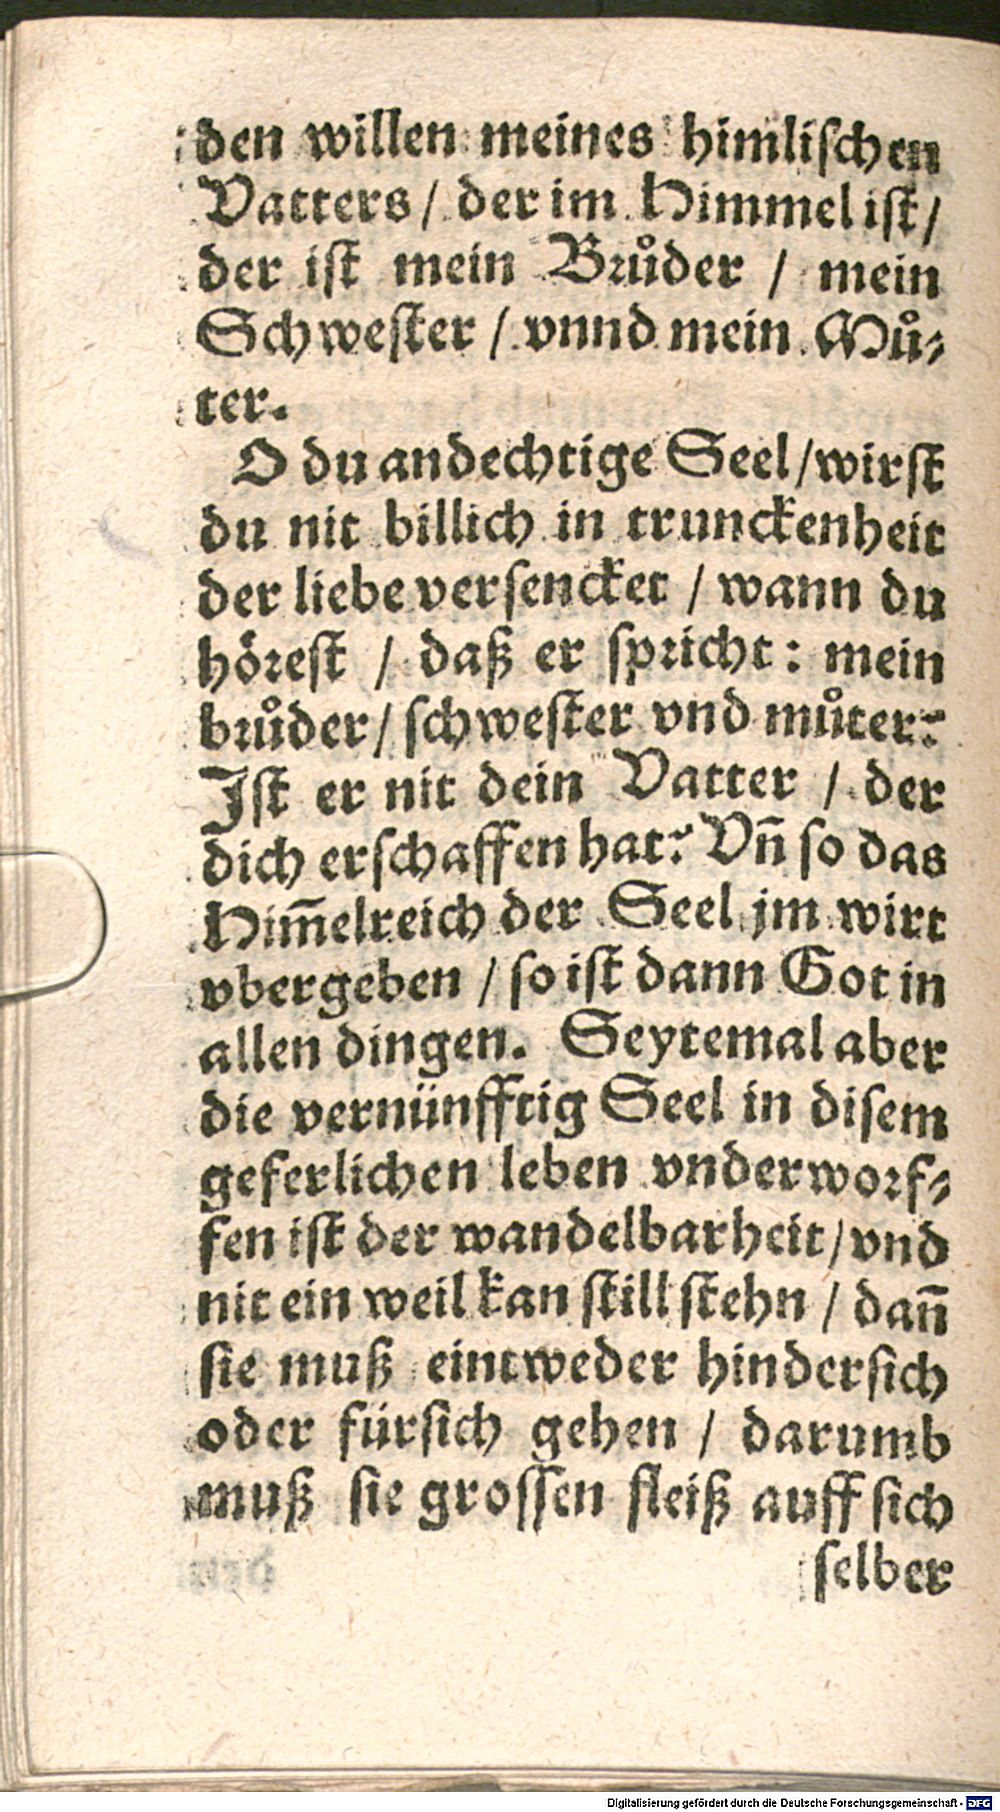 den willen meines himliſchen
Vatters / der im Himmel iſt /
der iſt mein Brůder / mein
Schweſter / vnnd mein Mů⸗
ter.
O du andechtige Seel / wirſt
du nit billich in trunckenheit
der liebe verſencket / wann du
hoͤreſt / daß er ſpricht: mein
brůder / ſchweſter vnd můter?
Iſt er nit dein Vatter / der
dich erſchaffen hat? Vn̄ ſo das
Him̄elreich der Seel jm wirt
vbergeben / ſo iſt dann Got in
allen dingen. Seytemal aber
die vernünfftig Seel in diſem
geferlichen leben vnderworf⸗
fen iſt der wandelbarheit / vnd
nit ein weil kan ſtill ſtehn / dan̄
ſie muß eintweder hinderſich
oder fürſich gehen / darumb
muß ſie groſſen fleiß auff ſich
ſelber
Digitalisierung gefördert durch die Deutsche Forschungsgemeinschaft - DFG